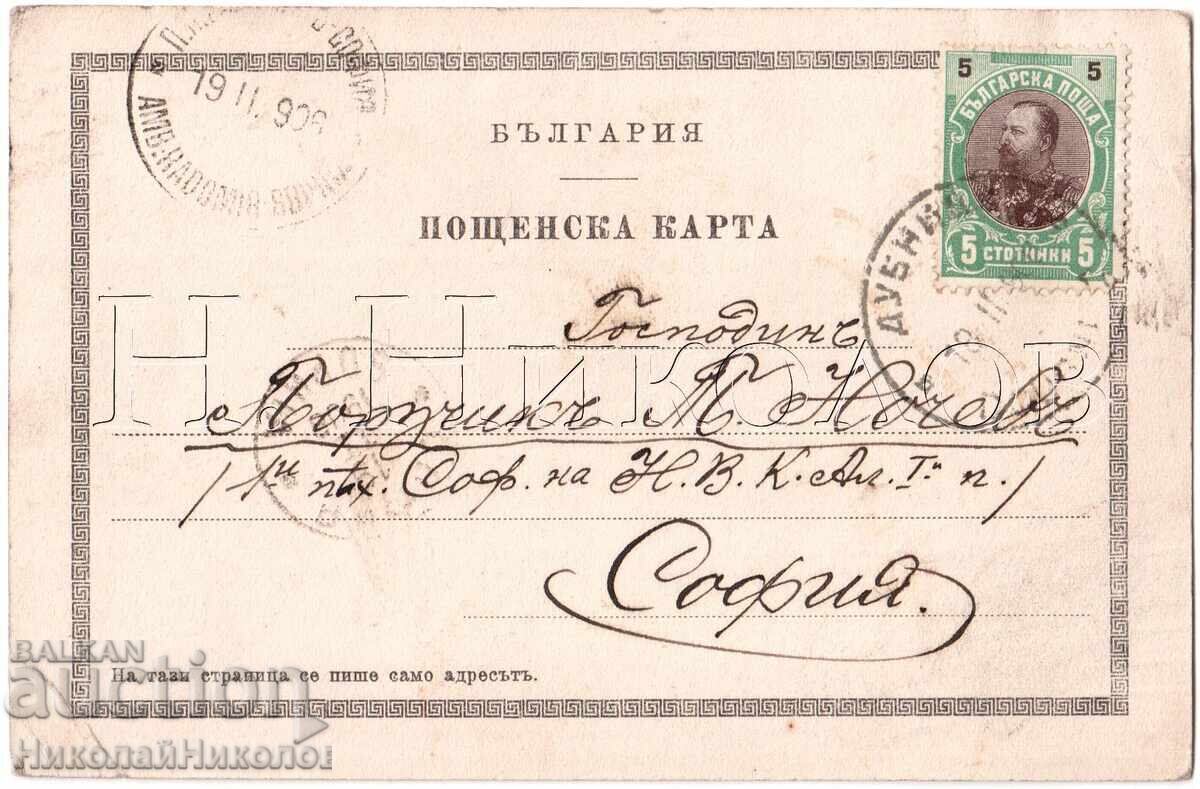 19 II 906
AMB. RADOMIR-SOPHIA
БЪЛГАРИЯ
ПОЩЕНСКА КАРТА
5 5
БЪЛГАРСКА ПОЩА
5 СТОТИНКИ 5
ДУБНИ
18 II
Н. НИКОЛОВ
Господинъ
Поручикъ П. Ночевъ
/1ий пѣх. Соф. на Н. В. К. Ал. Iй п./
София.
На тази страница се пише само адресътъ.
BALKAN
auction
НиколайНиколов